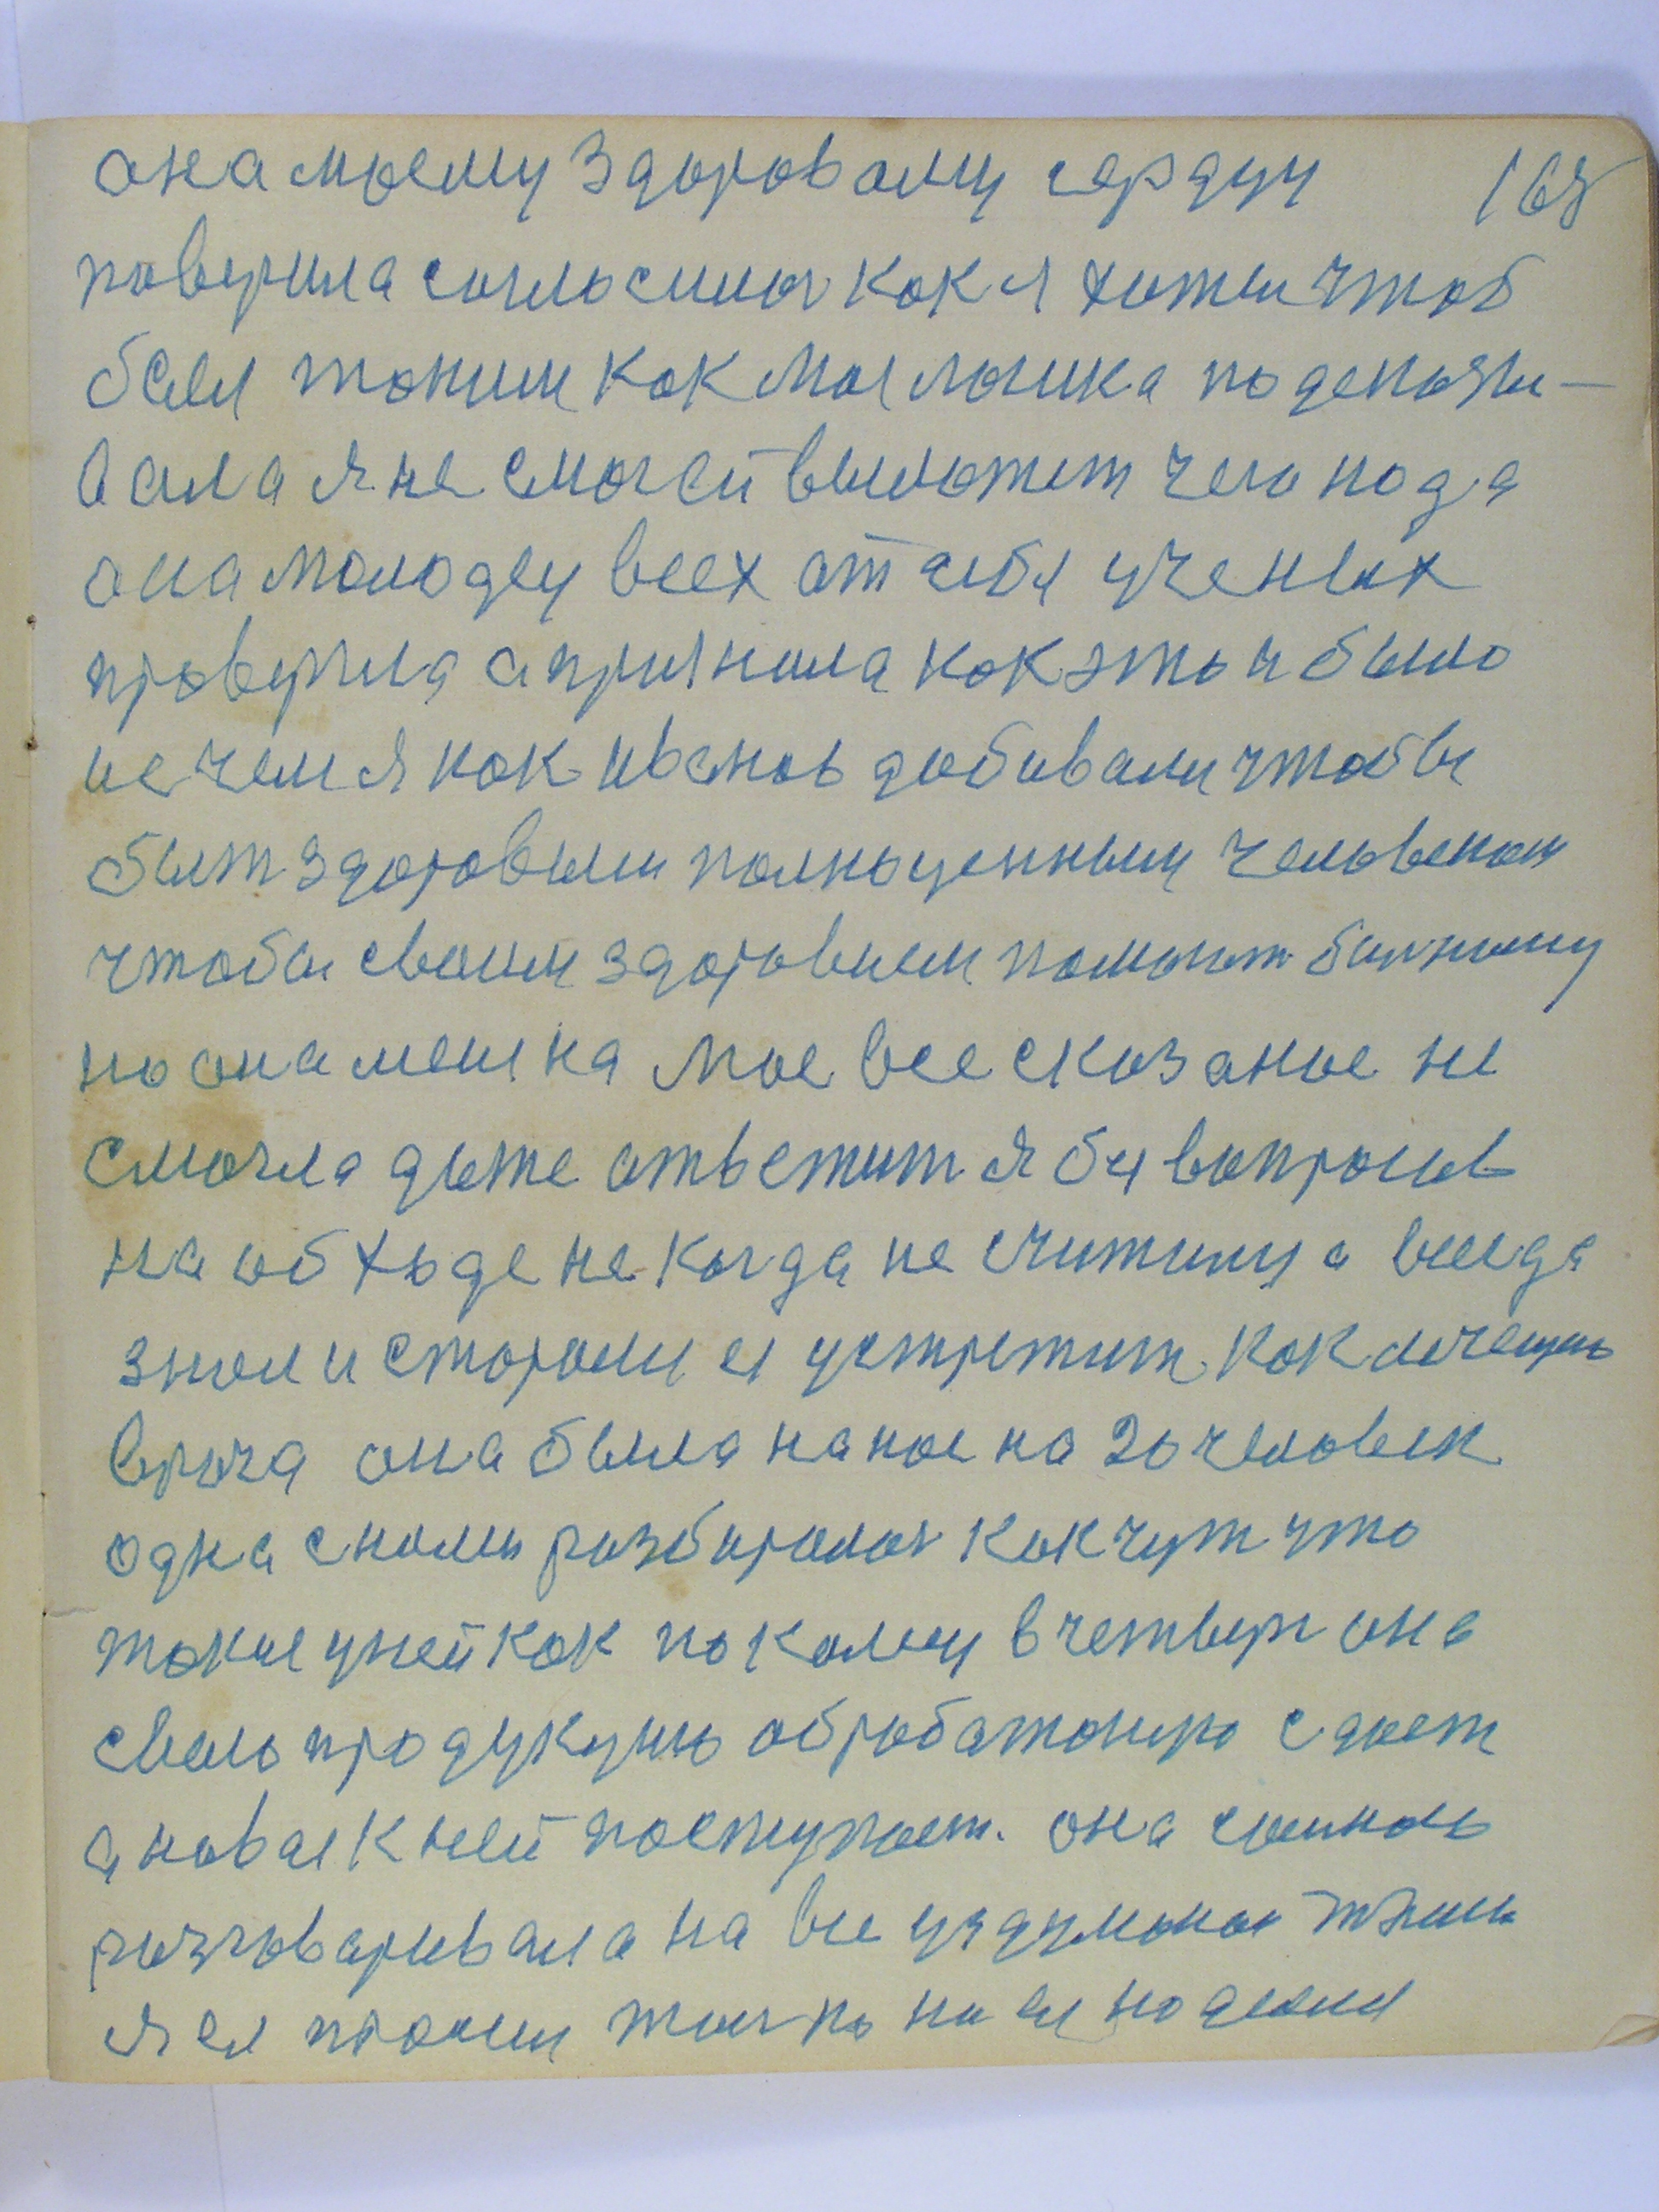 она моему здоровому сердцу 168
поверила согласилас как я хотел чтоб
был таким как моя логика подсказы-
вала я не смог ей виложит чего нода
она молодец всех от себя ученых
проверила а признала как это и было
не чем я как иванов добивали чтобы
быт здоровым полноценным человеком
чтобы своим здоровием помогат болному
но она меня на мое все сказаное не
смогла даже ответит я бу вопросов
на обходе не когда не считину а всегда
знал и старалц ея устретит как личецую
врача она была на нас на 20 человек
одна с нами разбиралас как чут что
такие у ней как по кому в четверг она
своею продукцию обработаную сдает
а новая к ней поступает. она самною
разговаривала на все уздумоное
я ея просил